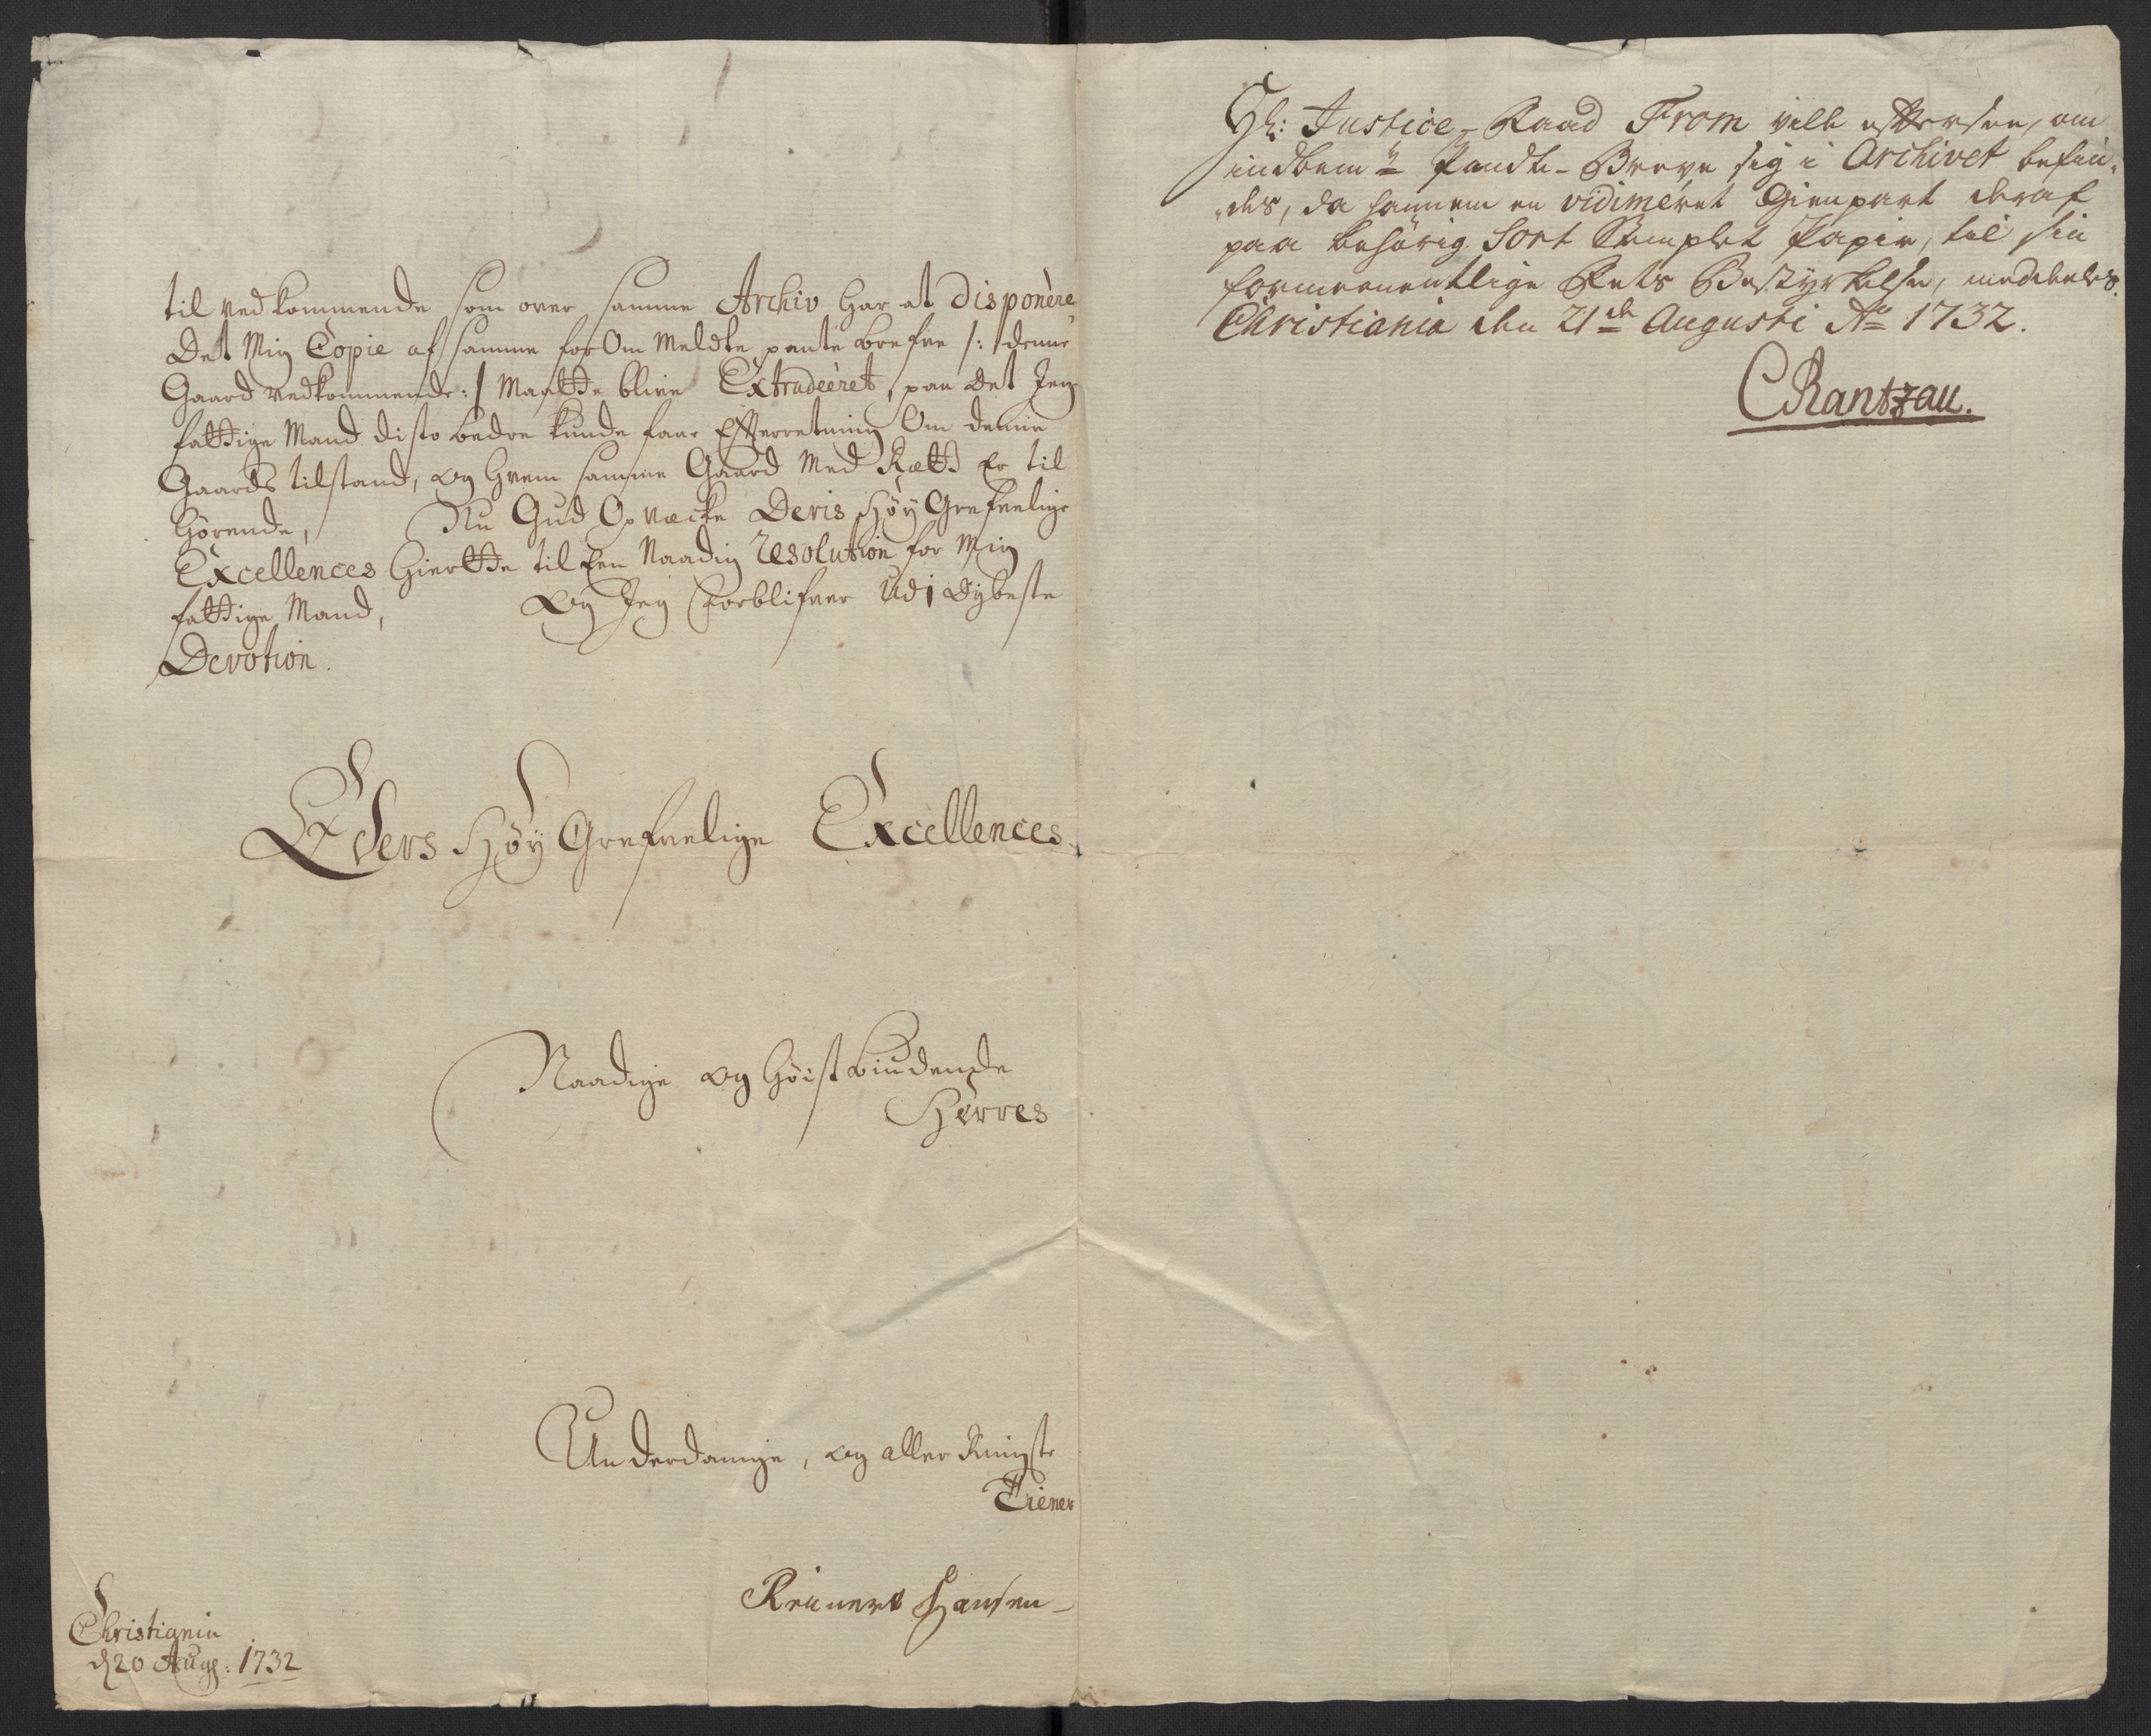 til ved kommende som over samme Archiv har at Disponère
Det Mig Copie af samme for Om Meldte pante brefve /: denne
Gaard vedkommende :/ Maatte blive Extradeèret, paa Det Jeg
fattige Mand disto bedre kunde faae Efterretning Om denne
Gaards tilstand, og hvem samme Gaard Med Rætt Er til
hørende, Nu Gud Opvæcke Deris Høy Grefvelige
Excellences Hiertte til Een Naadig resolution for Mig
fattige Mand, og Jeg forblifver Udi dybeste
Devotion.
Eders Høy Grefvelige Excellences
Naadige og høist biudende
Herres
Underdanige, og aller Ringste
Tiener
Reinert Hansen
Christiania
d 20 Aug: 1732
Hr: Justice-Raad From ville eftersee, om
indbem:te Pandte-Breve sig i Archivet befin-
des, da hannem en vidiméret Gienpart deraf
paa behørig Sort Stemplet Papir, til sin
formeenentlige Rets Bestyrkelse, meddeeles.
Christiania den 21de Augusti Ao 1732.
CRantzau.